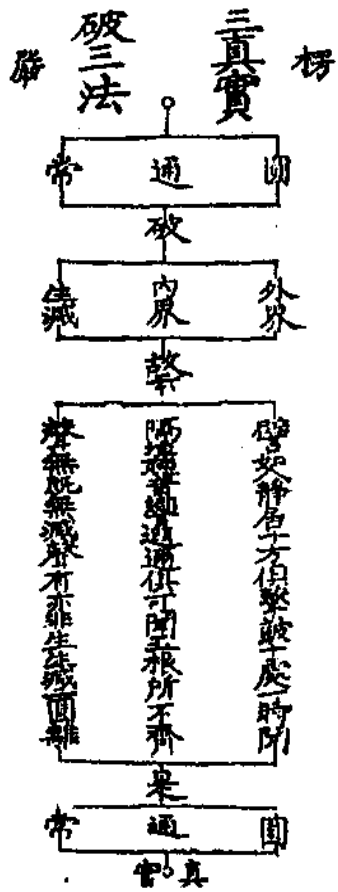 楞
三真實
破三法
嚴
圓
通
常
破
外界
內界
生滅
譬如靜居十方俱擊鼓十處一時聞
隔垣聽音響遐邇俱可聞五根所不齊
聲無既無滅聲有亦非生生滅圓離
是
圓
通
常
真實